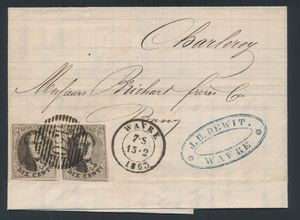 Charleroy
Messieurs Brichart frères Cie
DIX CENT. DIX CENT.
WAVRE
7-S
13-2
1863
J.B. DEWIT.
WAVRE